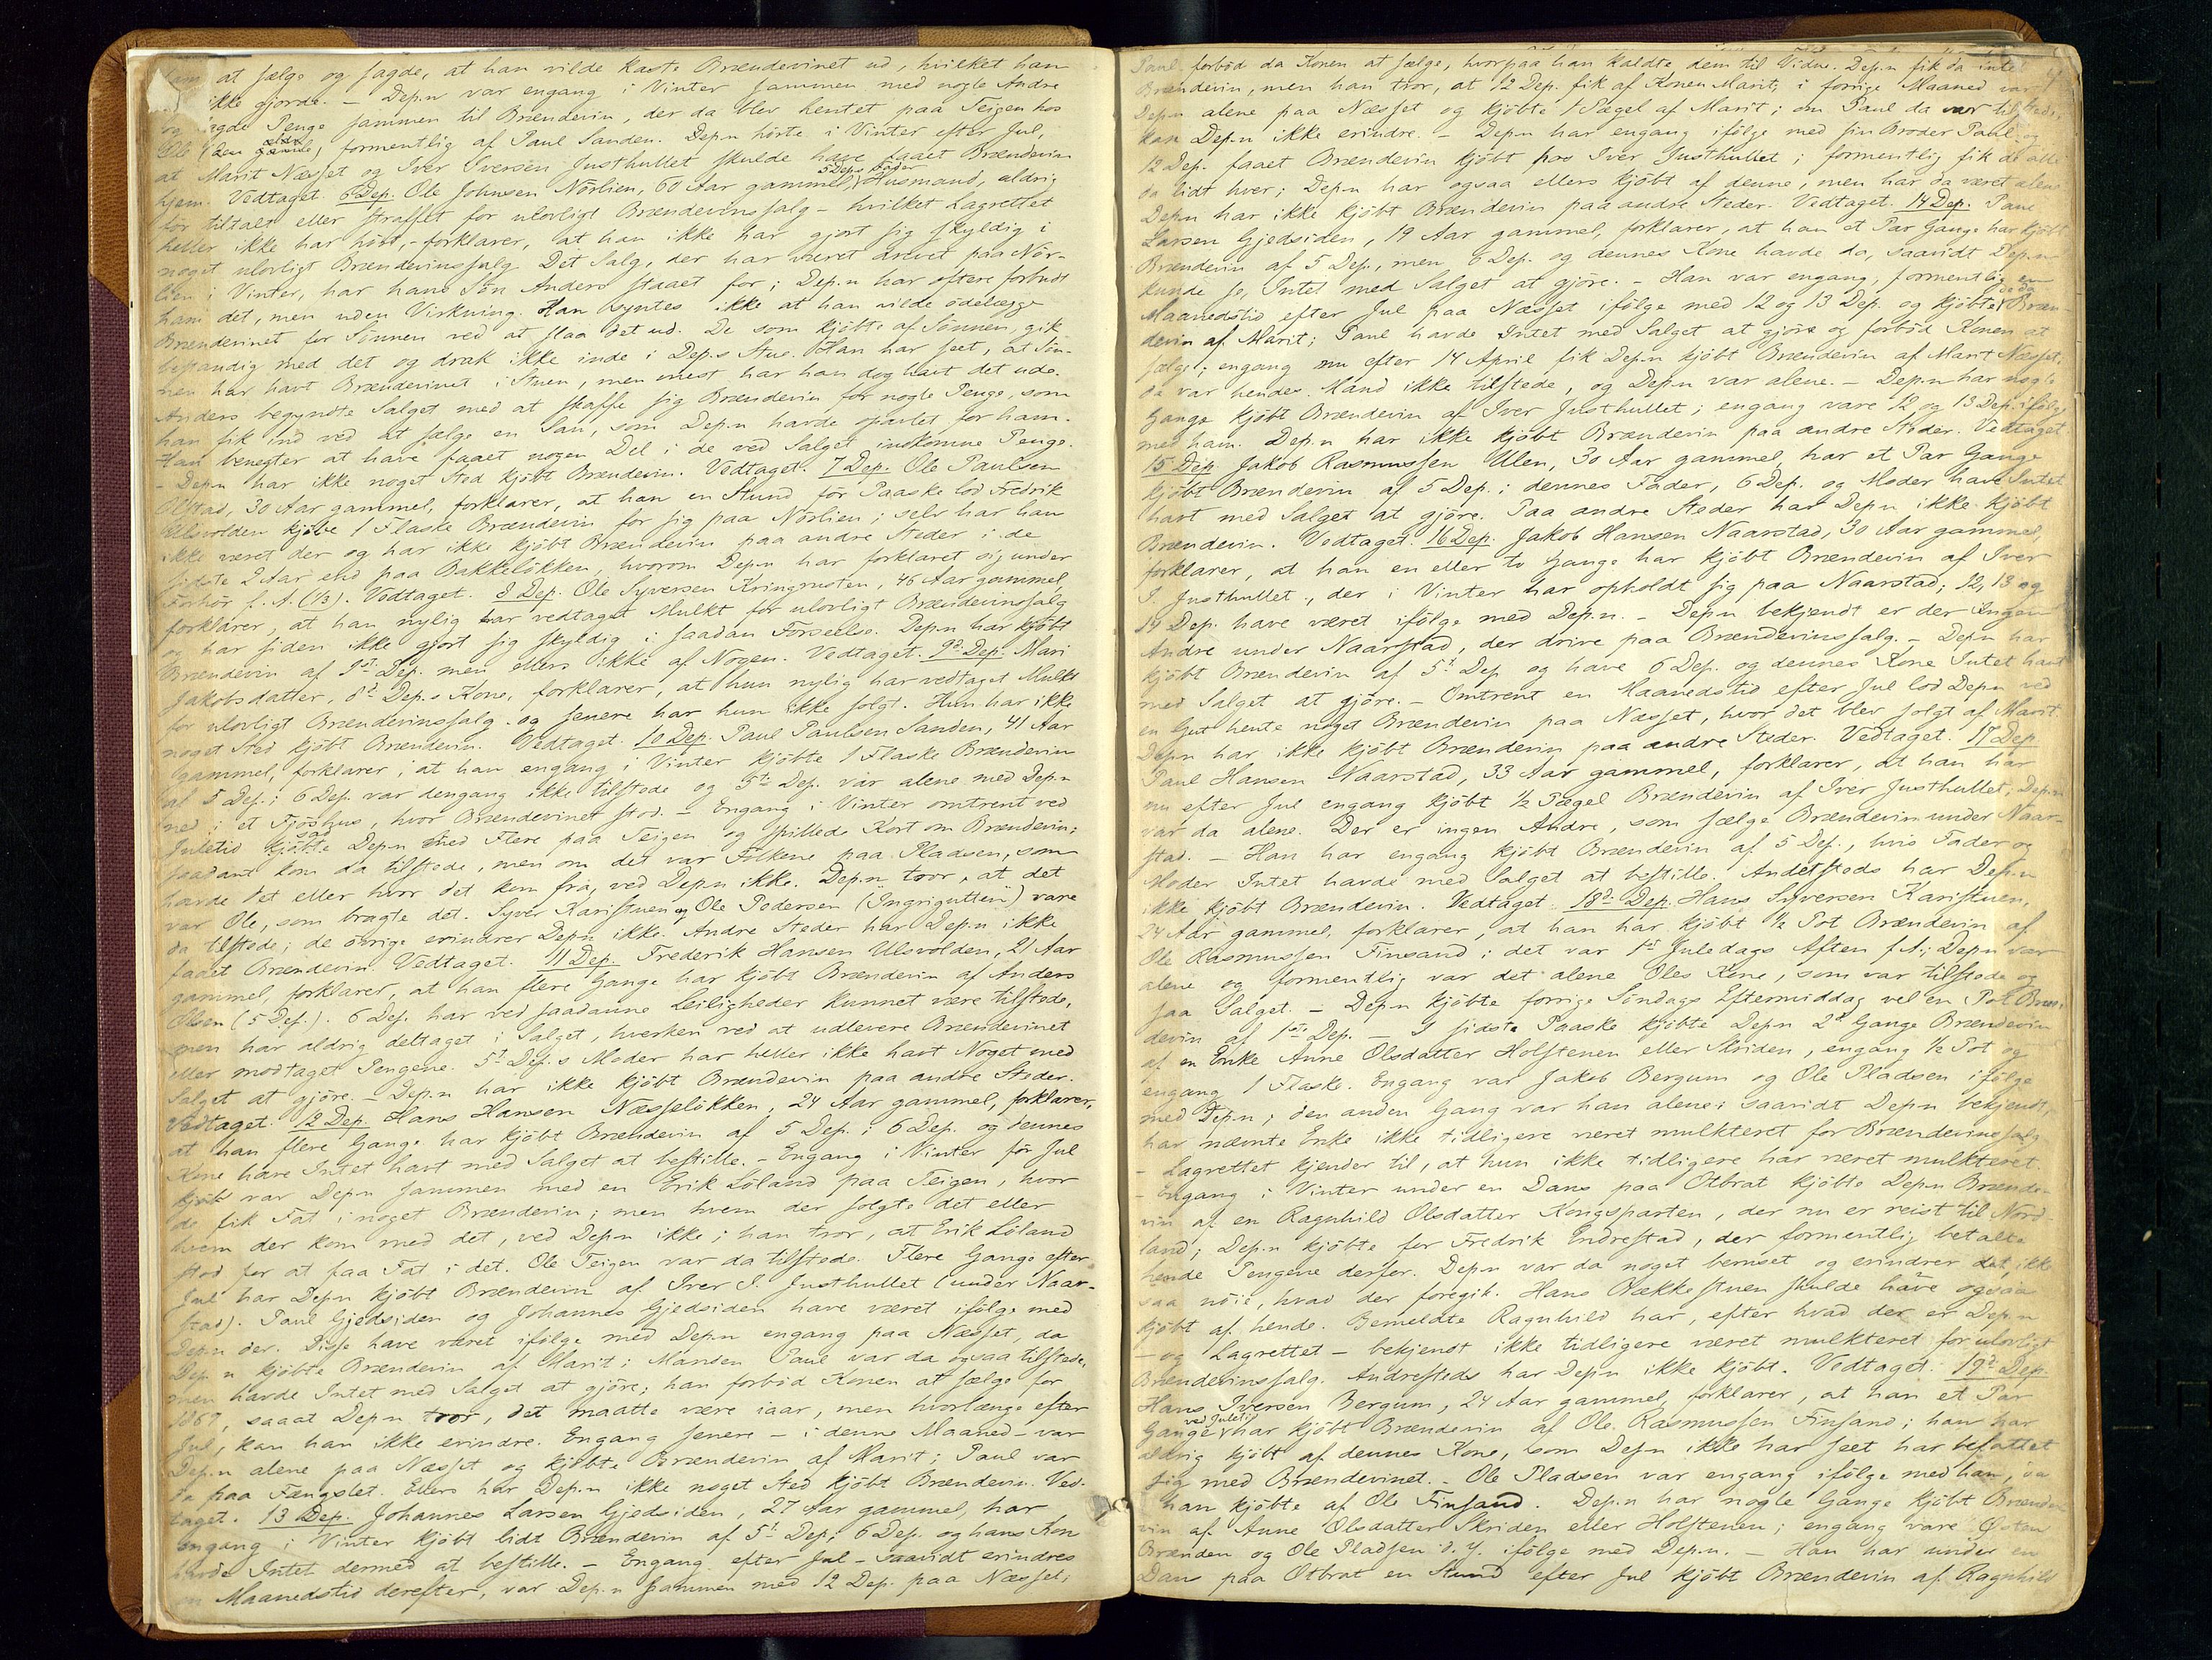 ham at sælge og sagde, at han vilde kaste Brændevinet ud, hvilket han
ikke gjorde. – Dep.n var engang i Vinter sammen med nogle Andre
og lagde Penge sammen til Brændevin, der da blev hentet paa Teigen hos
Ole (den ældre) formentlig af Paul Sanden. Dep.n hörte i Vinter efter Jul,
at Marit Næsset og Iver Iversen Justhullet skulde have faaet Brændevin
hjem. Vedtaget. 6 Dep. Ole Johnsen Nörlien, 60 Aar gammel, 5 Dep.s Fader Husmand, aldrig
för tiltalt eller straffet for ulovligt Brændevinssalg – hvilket Lagrettet
heller ikke har hört, – forklarer, at han ikke har gjort sig skyldig i
noget ulovligt Brændevinssalg. Det Salg, der har været drevet paa Nör-
lien i Vinter, har hans Sön Anders staaet for; Dep.n har oftere forbudt
ham det, men uden Virkning. Han syntes ikke at han vilde ödelægge
Brændevinet for Sönnen ved at slaa det ud. De som kjöbte af Sönnen, gik
bestandig med det og drak ikke inde i Dep.s Stue. Han har seet, at Sön-
nen har havt Brændevinet i Stuen, men mest har han dog havt det ude.
Anders begyndte Salget med at skaffe sig Brændevin for nogle Penge, som
han fik ind ved at sælge en Sau, som Dep.n havde opavlet for ham.
Han benegter at have faaet nogen Del i de ved Salget indkomne Penge.
– Dep.n har ikke noget Sted kjöbt Brændevin. Vedtaget. 7 Dep. Ole Paulsen
Olstad, 30 Aar gammel, forklarer, at han en Stund för Paaske lod Fredrik
Ulsvolden kjöbe 1 Flaske Brændevin for sig paa Nörlien; selv har han
ikke været der og har ikke kjöbt Brændevin paa andre Steder i de
sidste 2 Aar end paa Bakkelökken, hvorom Dep.n har forklaret sig under
Forhör f. A. (1/3). Vedtaget. 8 Dep. Ole Syversen Kringrusten, 46 Aar gammel
forklarer, at han nylig har vedtaget Mulkt for ulovligt Brændevinssalg
og har siden ikke gjort sig skyldig i saadan Forseelse. Dep.n har kjöbt
Brændevin af 1st Dep. men ellers ikke af Nogen. Vedtaget. 9d Dep. Mari
Jakobsdatter, 8d Dep.s Kone, forklarer, at hun nylig har vedtaget Mulkt
for ulovligt Brændevinssalg og senere har hun ikke solgt. Hun har ikke
noget Sted kjöbt Brændevin. Vedtaget. 10 Dep. Paul Paulsen Sanden, 41 Aar
gammel, forklarer, at han engang i Vinter kjöbte 1 Flaske Brændevin
af 5 Dep.; 6 Dep. var dengang ikke tilstede og 5te Dep. var alene med Dep.n
ned i et Fjöshus, hvor Brændevinet stod. – Engang i Vinter omtrent ved
Juletid sad Dep.n med Flere paa Teigen og spillede Kort om Brændevin;
saadant kom da tilstede, men om det var Folkene paa Pladsen, som
havde det eller hvor det kom fra, ved Dep.n ikke. Dep.n tror, at det
var Ole, som bragte det. Syver Karistuen og Ole Pedersen ("Ingrigutten") vare
da tilstede; de övrige erindrer Dep.n ikke. Andre Steder har Dep.n ikke
faaet Brændevin. Vedtaget. 11 Dep. Frederik Hansen Ulsvolden, 21 Aar
gammel, forklarer, at han flere Gange har kjöbt Brændevin af Anders
Olsen (5 Dep.). 6 Dep. har ved saadanne Leiligheder kunnet være tilstede,
men har aldrig deltaget i Salget, hverken ved at udlevere Brændevinet
eller modtaget Pengene. 5t Dep.s Moder har heller ikke havt Noget med
Salget at gjöre. – Dep.n har ikke kjöbt Brændevin paa andre Steder.
Vedtaget. 12 Dep. Hans Hansen Næsselökken, 24 Aar gammel, forklarer,
at han flere Gange har kjöbt Brændevin af 5 Dep.; 6 Dep. og dennes
Kone have Intet havt med Salget at bestille. – Engang i Vinter för Jul
var Dep.n sammen med en Erik Löland paa Teigen, hvor
de fik Fat i noget Brændevin; men hvem der solgte det eller
hvem der kom med det, ved Dep.n ikke; han tror, at Erik Löland
stod for at faa Fat i det. Ole Teigen var da tilstede. Flere Gange efter
Jul har Dep.n kjöbt Brændevin af Iver I. Justhullet (under Naar-
stad). Paul Gjedsiden og Johannes Gjedsiden have været ifölge med
Dep.n der. Disse have været ifölge med Dep.n engang paa Næsset, da
Dep.n kjöbte Brændevin af Marit; Manden Paul var da ogsaa tilstede,
men havde Intet med Salget at gjöre; han forböd Konen at sælge for
1867, saaat Dep.n tror, det maatte være iaar, men hvorlænge efter
Jul, kan han ikke erindre. Engang senere – i denne Maaned – var
Dep.n alene paa Næsset og kjöbte Brændevin af Marit; Paul var
da paa Fængslet. Ellers har Dep.n ikke noget Sted kjöbt Brændevin. Ved-
taget. 13 Dep. Johannes Larsen Gjedsiden, 27 Aar gammel, har
engang i Vinter kjöbt lidt Brændevin af 5t Dep.; 6 Dep. og hans Kon
havde Intet dermed at bestille. – Engang efter Jul – saavidt erindres
en Maanedstid derefter, var Dep.n sammen med 12 Dep. paa Næsset;
Paul forböd da Konen at sælge, hvorpaa han kaldte dem til Vidne. Dep.n fik da intet
Brændevin, men han tror, at 12 Dep. fik af Konen Marit; i forrige Maaned var
Dep.n alene paa Næsset og kjöbte 1 Pægel af Marit; om Paul da var tilstede,
kan Dep.n ikke erindre. – Dep.n har engang ifölge med sin Broder Paul og
12 Dep. faaet Brændevin kjöbt hos Iver Justhullet; formentlig fik de alle
da lidt hver; Dep.n har ogsaa ellers kjöbt af denne, men har da været alene
Dep.n har ikke kjöbt Brændevin paa andre Steder. Vedtaget. 14 Dep. Paul
Larsen Gjedsiden, 19 Aar gammel, forklarer, at han et Par Gange har kjöbt
Brændevin af 5 Dep., men 6 Dep. og dennes Kone havde da, saavidt Dep.n
kunde se, Intet med Salget at gjöre. – Han var engang, formentlig en
Maanedstid efter Jul paa Næsset ifölge med 12 og 13 Dep. og kjöbte de da Bræn-
devin af Marit; Paul havde Intet med Salget at gjöre og forböd Konen at
sælge; engang nu efter 14 April fik Dep.n kjöbt Brændevin af Marit Næsset,
da var hendes Mand ikke tilstede, og Dep.n var alene. – Dep.n har nogle
Gange kjöbt Brændevin af Iver Justhullet; engang vare 12 og 13 Dep. ifölge
med ham. Dep.n har ikke kjöbt Brændevin paa andre Steder. Vedtaget.
15 Dep. Jakob Rasmussen Ulen, 30 Aar gammel, har et Par Gange
kjöbt Brændevin af 5 Dep.; dennes Fader, 6 Dep. og Moder have Intet
havt med Salget at gjöre. Paa andre Steder har Dep.n ikke kjöbt
Brændevin. Vedtaget. 16 Dep. Jakob Hansen Naarstad, 30 Aar gammel,
forklarer, at han en eller to Gange har kjöbt Brændevin af Iver
I. Justhullet, der i Vinter har opholdt sig paa Naarstad; 12, 13 og
14 Dep. have været ifölge med Dep.n. – Dep.n bekjendt er der Ingen
Andre under Naarstad, der drive paa Brændevinssalg. – Dep.n har
kjöbt Brændevin af 5t Dep og have 6 Dep. og dennes Kone Intet havt
med Salget at gjöre. – Omtrent en Maanedstid efter Jul lod Dep.n ved
en Gut hente noget Brændevin paa Næsset, hvor det blev solgt af Marit.
Dep.n har ikke kjöbt Brændevin paa andre Steder. Vedtaget. 17 Dep
Paul Hansen Naarstad, 33 Aar gammel, forklarer, at han har
nu efter Jul engang kjöbt 1/2 Pægel Brændevin af Iver Justhullet, Dep.n
var da alene. Der er ingen Andre, som sælge Brændevin under Naar-
stad. – Han har engang kjöbt Brændevin af 5 Dep., hvis Fader og
Moder Intet havde med Salget at bestille. Andetsteds har Dep.n
ikke kjöbt Brændevin. Vedtaget. 18de Dep. Hans Syversen Karistuen,
24 Aar gammel, forklarer, at han har kjöbt 1/2 Pot Brændevin af
Ole Rasmussen Finsand; det var 1st Juledags Aften f. A.; Dep.n var
alene og formentlig var det alene Oles Kone, som var tilstede og
saa Salget. – Dep.n kjöbte forrige Söndags Eftermiddag vel en Pot Bræn-
devin af 1ste Dep. – I sidste Paaske kjöbte Dep.n 2d Gange Brændevin
af en Enke Anne Olsdatter Holstenen eller Skriden, engang 1/2 Pot og
engang 1 Flaske. Engang var Jakob Bergum og Ole Pladsen ifölge
med Dep.n; den anden Gang var han alene; saavidt Dep.n bekjendt,
har nævnte Enke ikke tidligere været mulkteret for Brændevinssalg
– Lagrettet kjender til, at hun ikke tidligere har været mulkteret.
– Engang i Vinter under en Dans paa Otbrat kjöbte Dep.n Brænde-
vin af en Ragnhild Olsdatter Kongsparten, der nu er reist til Nord-
land; Dep.n kjöbte for Fredrik Endrestad, der formentlig betalte
hende Pengene derfor. Dep.n var da noget beruset og erindrer det ikke
saa nöie, hvad der foregik. Hans Bækkestuen skulde have ogsaa
kjöbt af hende. Bemeldte Ragnhild har, efter hvad der er Dep.n
– og Lagrettet – bekjendt ikke tidligere været mulkteret for ulovligt
Brændevinssalg. Andresteds har Dep.n ikke kjöbt. Vedtaget. 19d Dep.
Hans Iversen Bergum, 24 Aar gammel, forklarer, at han et Par
Gange ved Juletid har kjöbt Brændevin af Ole Rasmussen Finsand; han har
aldrig kjöbt af dennes Kone, som Dep.n ikke har seet har befattet
sig med Brændevinet. – Ole Pladsen var engang ifölge med ham, da
han kjöbte af Ole Finsand. Dep.n har nogle Gange kjöbt Brænde-
vin af Anne Olsdatter Skriden eller Holstenen; engang vare Östen
Brænden og Ole Pladsen d. y. ifölge med Dep.n. – Han har under en
Dans paa Otbrat en Stund efter Jul kjöbt Brændevin af Ragnhild